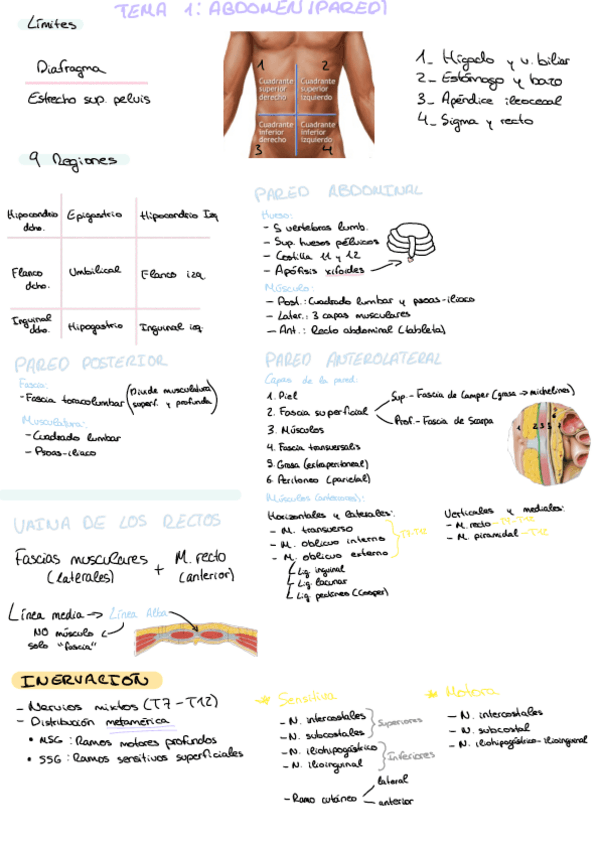 TEMA 1: ABDOMEN (PARED)
Límites
Diafragma
Estrecho sup. pelvis
1
2
Cuadrante superior derecho
Cuadrante superior izquierdo
Cuadrante inferior derecho
Cuadrante inferior izquierdo
3
4
1_ Hígado y v. biliar
2_ Estómago y bazo
3_ Apéndice ileocecal
4_ Sigma y recto
9 Regiones
Hipocondrio dcho.
Epigastrio
Hipocondrio Izq
Flanco dcho.
Umbilical
Flanco izq
Inguinal dcho.
Hipogastrio
Inguinal izq.
PARED ABDOMINAL
Hueso:
- 5 vertebras lumb.
- Sup. huesos pélvicos
- Costilla 11 y 12
- Apófisis xifoides
Músculo:
- Post.: Cuadrado lumbar y psoas-iliaco
- Later.: 3 capas musculares
- Ant.: Recto abdominal (tableta)
PARED POSTERIOR
Fascia:
- Fascia toracolumbar (Divide musculatura superf. y profunda)
Musculatura:
- Cuadrado lumbar
- Psoas-iliaco
PARED ANTEROLATERAL
Capas de la pared:
1. Piel
2. Fascia superficial
Sup.- Fascia de Camper (grasa → michelines)
Prof.- Fascia de Scarpa
3. Músculos
4. Fascia transversalis
5. Grasa (extraperitoneal)
6. Peritoneo (parietal)
Músculos (anteriores):
Horizontales y laterales:
- M. transverso
- M. oblicuo interno
- M. oblicuo externo
T7-T12
Lig. inguinal
Lig. lacunar
Lig. pectíneo (Cooper)
Verticales y mediales:
- M. recto - T7-T12
- M. piramidal - T12
VAINA DE LOS RECTOS
Fascias musculares (laterales) + M. recto (anterior)
Línea media → Línea Alba
NO músculo
solo "fascia"
INERVACIÓN
- Nervios mixtos (T7-T12)
- Distribución metamérica
• MSG: Ramos motores profundos
• SSG: Ramos sensitivos superficiales
* Sensitiva
- N. intercostales
- N. subcostales
Superiores
- N. iliohipogástrico
- N. ilioinguinal
Inferiores
- Ramo cutáneo
lateral
anterior
* Motora
- N. intercostales
- N. subcostal
- N. iliohipogástrico-ilioinguinal